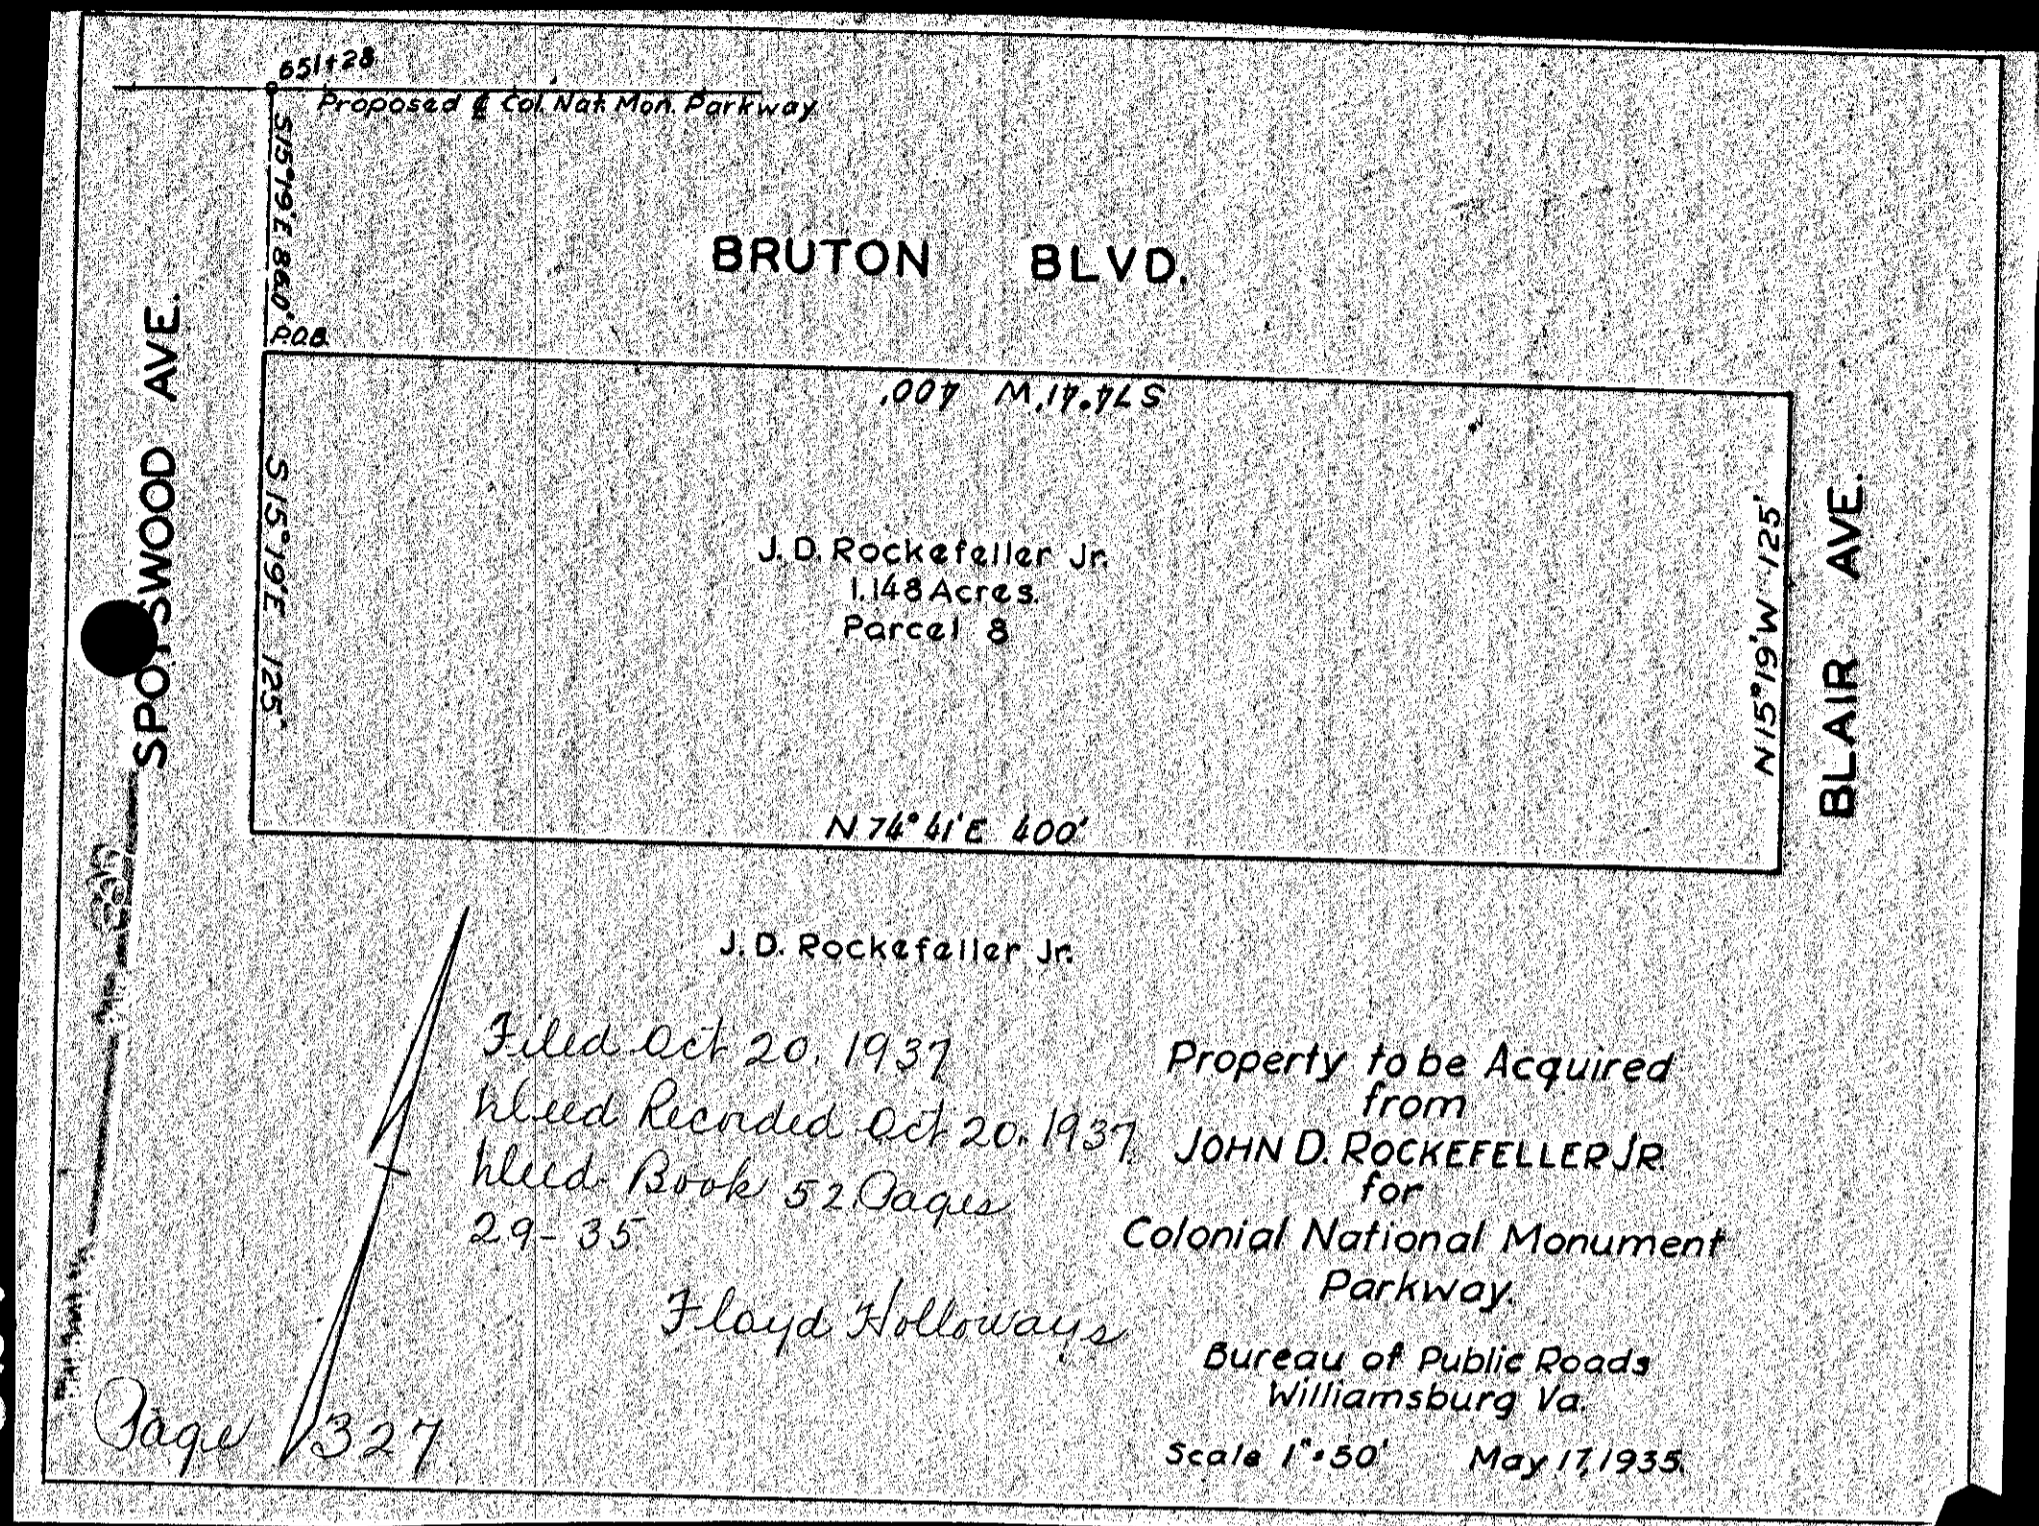 651+28
Proposed ℄ Col. Nat. Mon. Parkway
S15°19'E 86.0'
P.O.B.
BRUTON BLVD.
SPOTSWOOD AVE.
S 74°41'W 400'
S 15°19'E 125'
J. D. Rockefeller Jr.
1.148 Acres.
Parcel 8
N 15°19'W 125'
BLAIR AVE.
N 74°41'E 400'
J. D. Rockefeller Jr.
Filed Oct 20, 1937
Deed Recorded Oct 20, 1937.
Deed Book 52 Pages
29-35
Floyd Holloways
Page 327
Property to be Acquired
from
JOHN D. ROCKEFELLER JR.
for
Colonial National Monument
Parkway.
Bureau of Public Roads
Williamsburg Va.
Scale 1"=50' May 17, 1935.